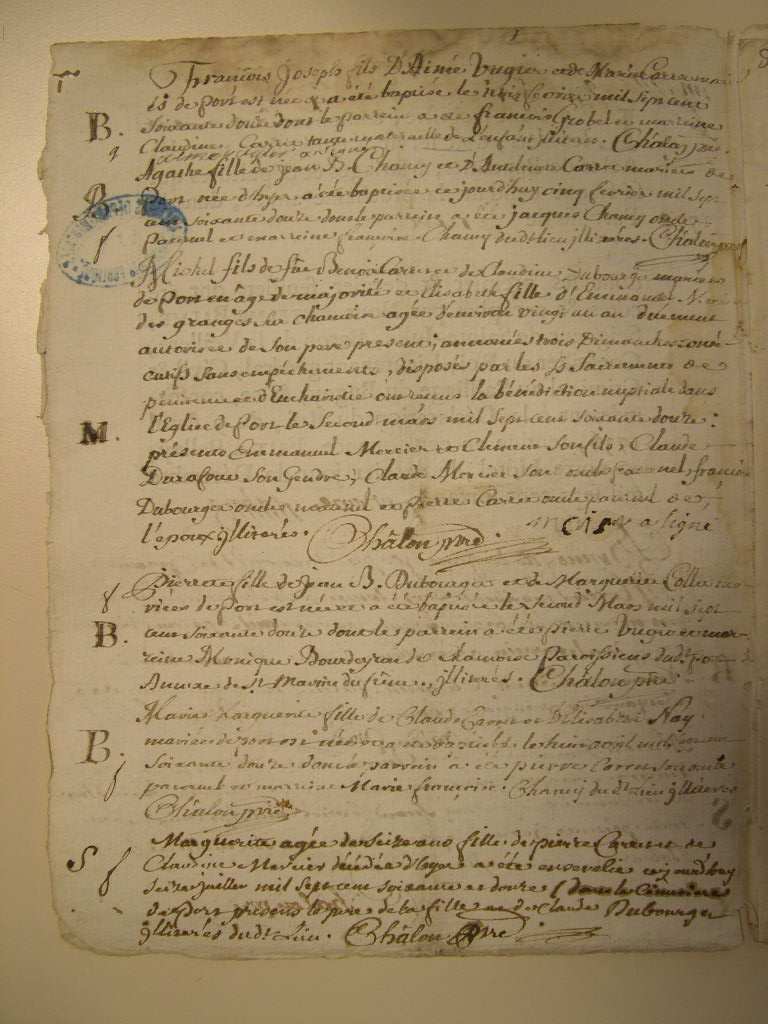 1
François Joseph fils D'Aimé Vugier et de Marie Carre mari
és de Port est né et a été baptisé le mil sept cent
B. soixante douze dont le parrein a été françois Grobel et marreine
Claudine Carre tante maternelle de l'enfant jllitérés. Châlon ptre.
Agathe fille de jean B. Chamy et D'Andreine Carre mariés de
B Port née d'hyer a été baptisée ce jourdhuy cinq fevrier mil sept
cent soixante douze dont le parrein a été jacques Chamy oncle
f paternel et marreine françoise Chamy du dt lieu jllitérés. Châlon ptre
Michel fils de fû Benoit Carre et de Claudine Dubourge mariés
de Port en âge de majorité et Elisabeth fille d'Emmanuel
des granges sur chamoise agée d'environ vingt un an duement
autorisée de son pere present; annoncés trois Dimanches consé-
cutifs sans empéchements, disposés par les Ss Sacrements de
pénitence et d'Eucharistie ont reçus la bénédiction nuptiale dans
M. l'Eglise de Port le second mars mil sept cent soixante douze:
présents Emmanuel Mercier et Clement son fils, Claude
Durafour son Gendre, Claude Mercier son oncle paternel, françois
Dubourge oncle maternel et pierre Carre oncle paternel de
l'époux jllitérés. Châlon ptre. a signé
f Pierrete fille de jean B. Dubourge et de Marguerite Collet ma-
riés de Port est née et a été baptisée le second Mars mil sept
B. cent soixante douze dont le parrein a été pierre Vugier et mar-
reine Monique Bourdeyron de chamoise Paroissiens du dt Port
Annexe de St Martin du frêne, jllitérés. Châlon ptre.
Marie Marguerite fille de Claude Carre et D'Elisabeth Nay
B. mariés de port est née et a été baptisée le huit avril mil sept cent
f soixante douze dont le parrein a été pierre Carre son oncle
paternel et marreine Marie françoise Chamy du dt lieu jllitérés
Châlon ptre
Marguerite agée de seize ans fille de pierre Carre et de
S f Claudine Mercier décédée d'hyer a été ensevelie ce jourd'huy
seize juillet mil sept cent soixante et douze dans le cimetiere
de Port présents le pere de la fille et de Claude Dubourge
jllitérés du dt Lieu. Châlon Ptre